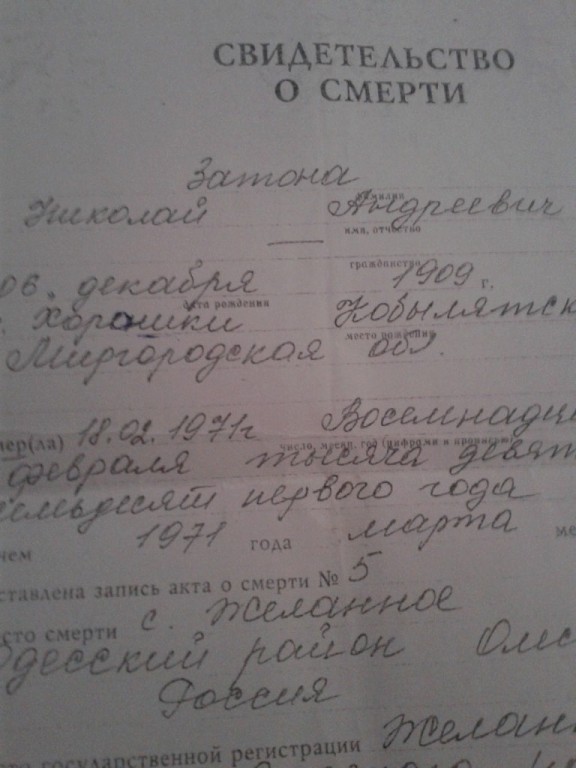 СВИДЕТЕЛЬСТВО
О СМЕРТИ
Затона
фамилия
Николай Андреевич
имя, отчество
—
гражданство
06. декабря 1909 г.
дата рождения
с. Хорошки Кобылятск
место рождения
Миргородская обл.
мер(ла) 18.02.1971г Восемнадц
число, месяц, год (цифрами и прописью)
февраля тысяча девят
семьдесят первого года
чем 1971 года марта ме
ставлена запись акта о смерти № 5
сто смерти с. Желанное
Одесский район Омс
Россия
сто государственной регистрации Желанн